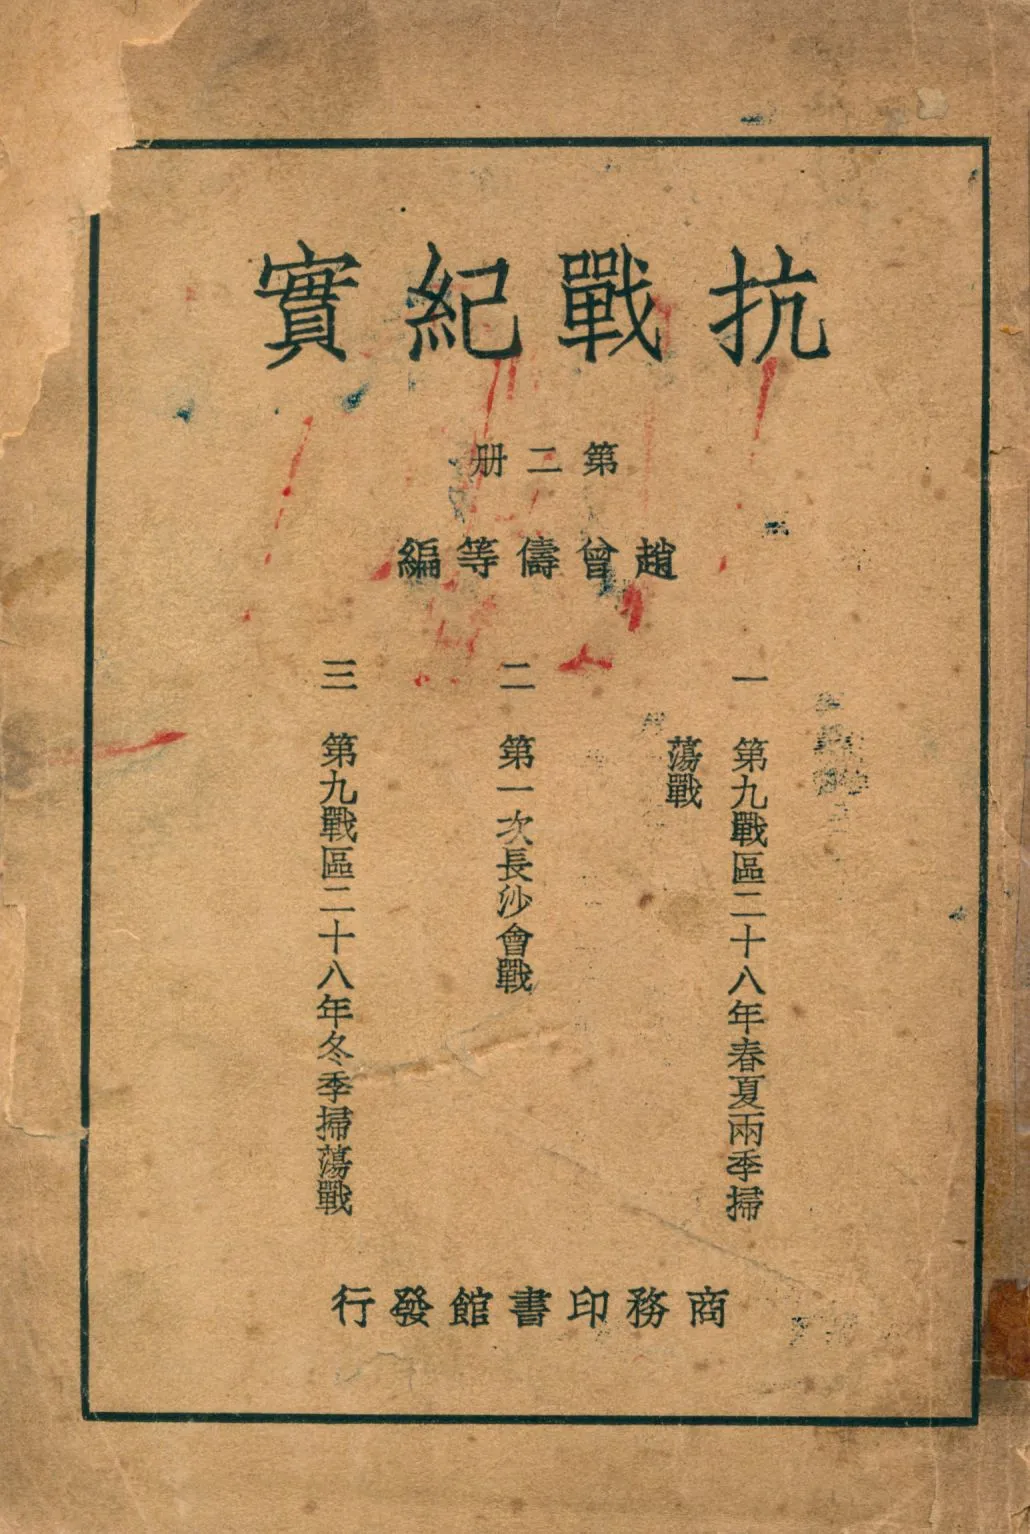 抗戰紀實
第二册
趙曾儔等編
一 第九戰區二十八年春夏兩季掃
蕩戰
二 第一次長沙會戰
三 第九戰區二十八年冬季掃蕩戰
商務印書館發行